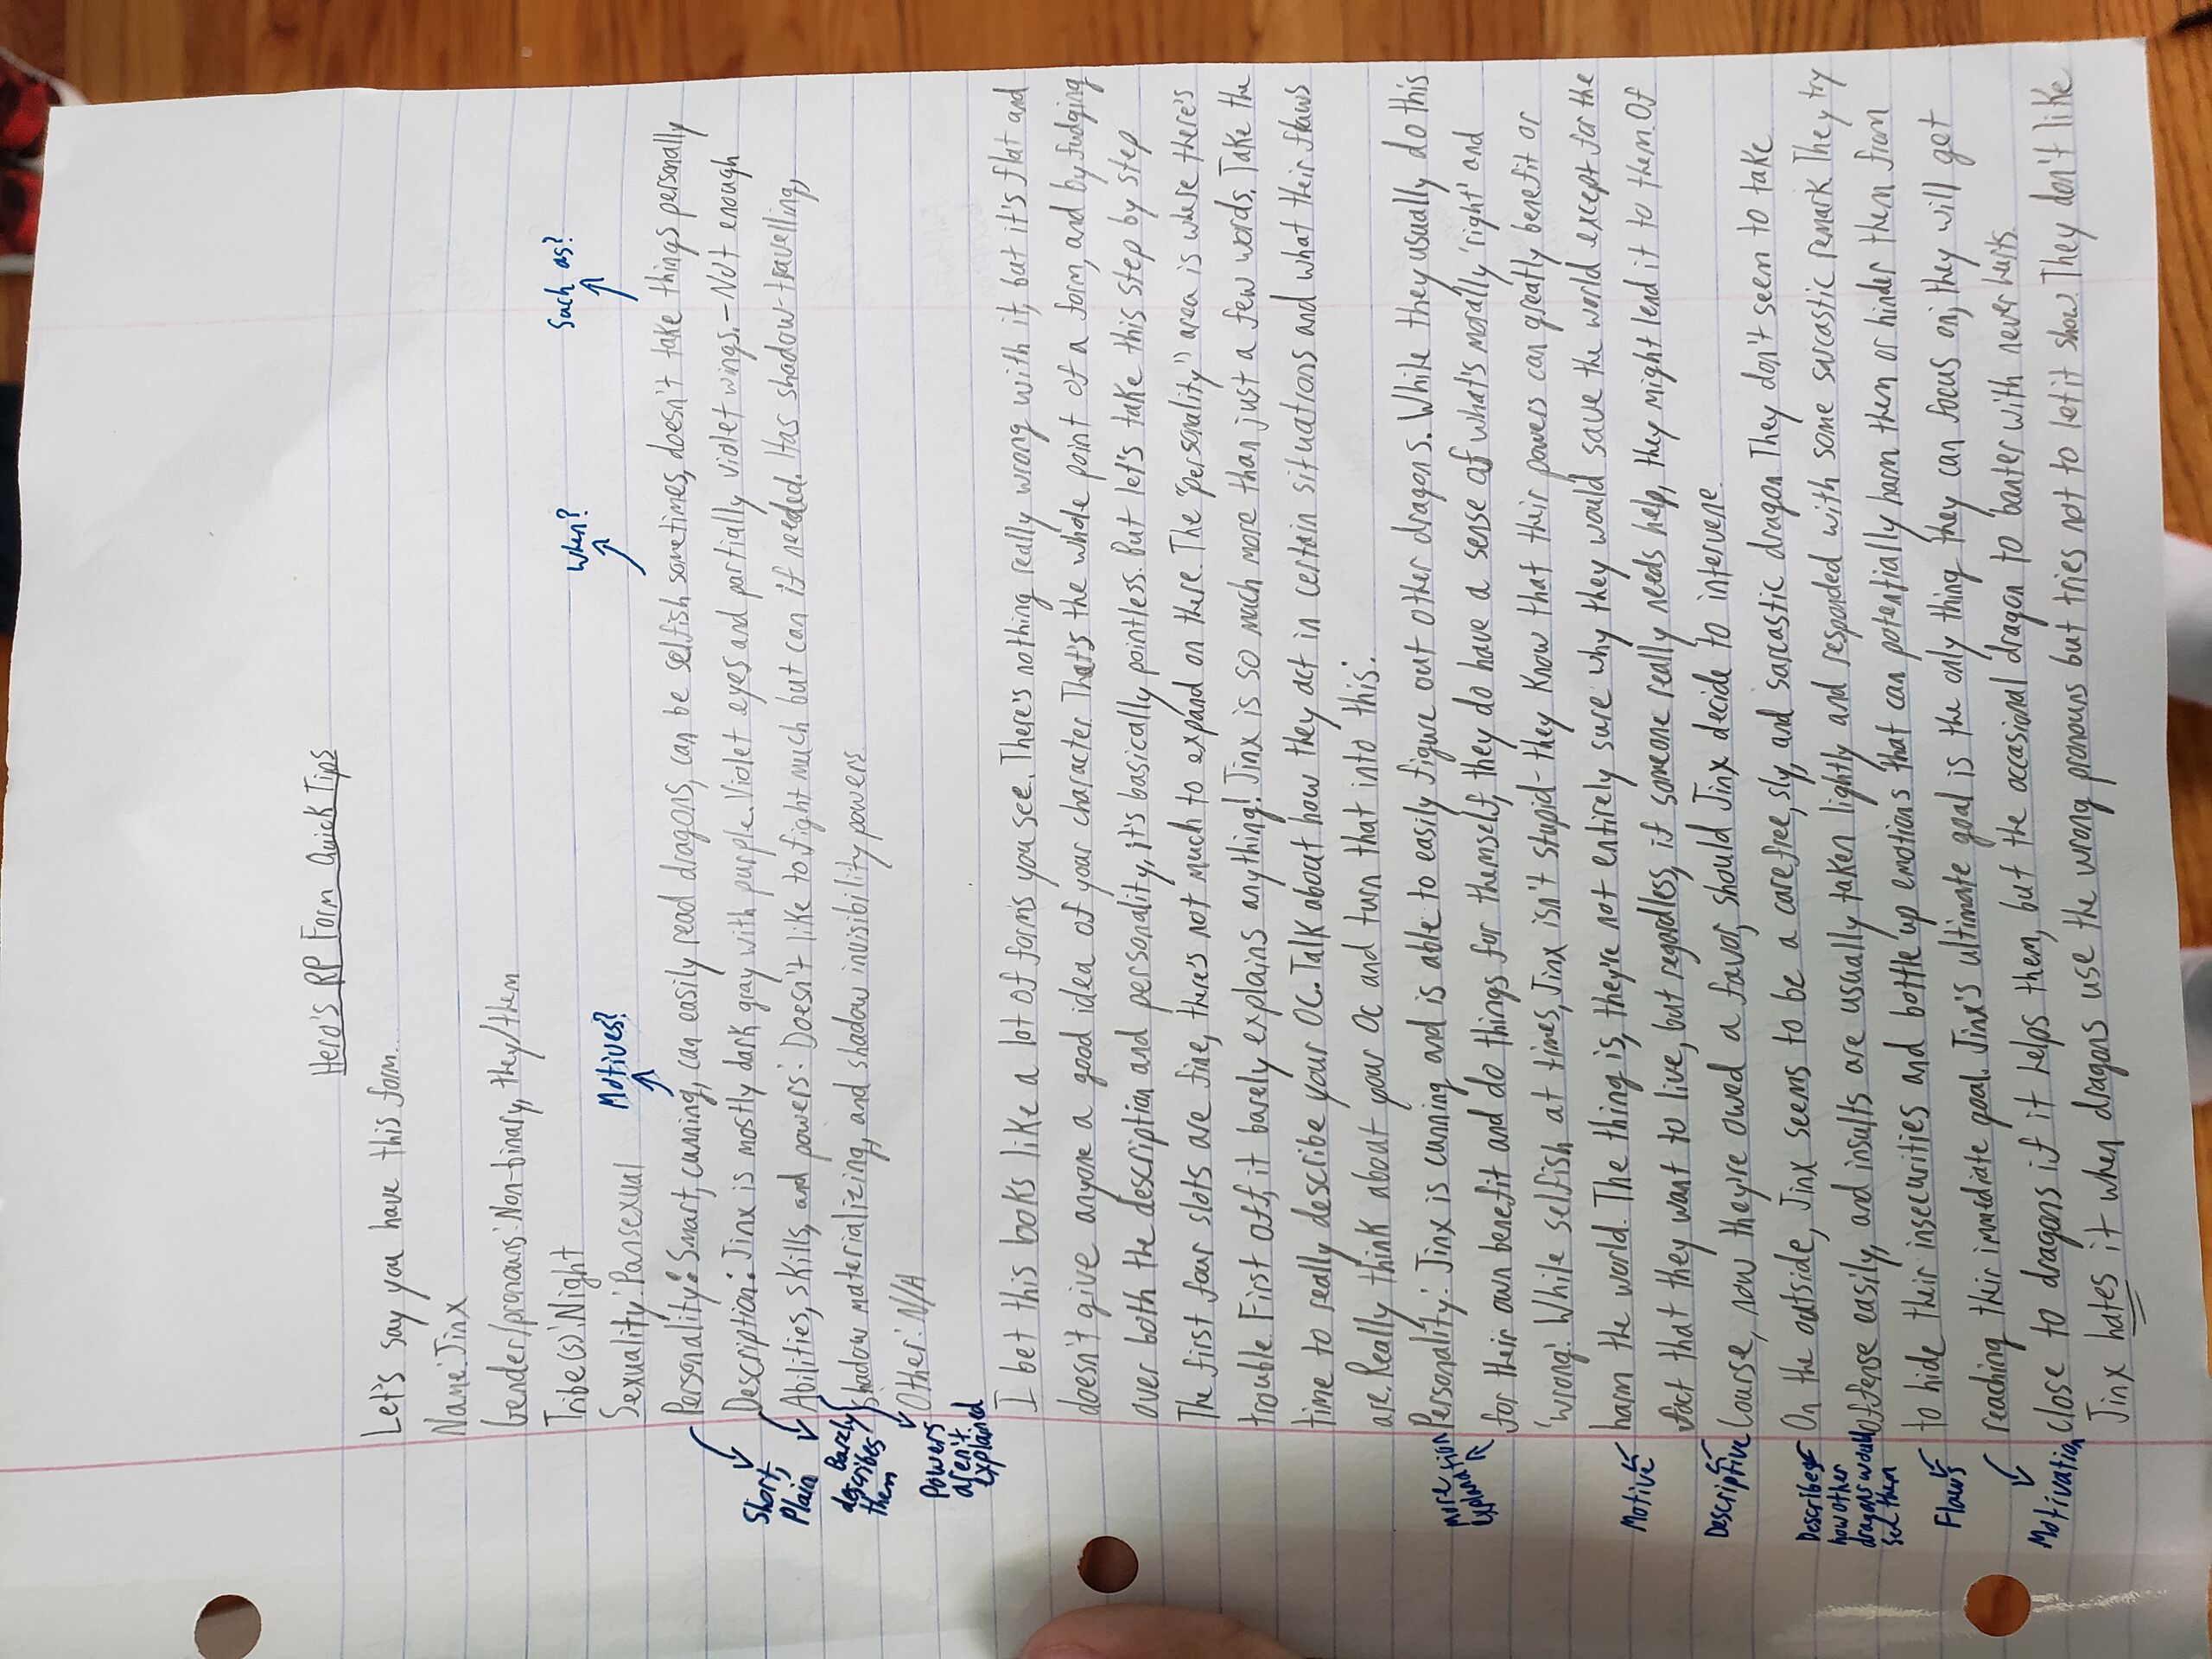 Hero's RP Form Quick Tips
Let's say you have this form...
Name: Jinx
Gender/pronouns: Non-binary, they/them
Tribe(s): Night
Such as?
When?
Motives?
Sexuality: Pansexual
Personality: Smart, cunning, can easily read dragons, can be selfish sometimes, doesn't take things personally
Description: Jinx is mostly dark gray with purple. Violet eyes and partially violet wings. - Not enough
Short, Plain
Abilities, skills, and powers: Doesn't like to fight much but can if needed. Has shadow-travelling,
Barely describes them
Shadow materializing, and shadow invisibility powers
Powers aren't explained
Other: N/A
I bet this looks like a lot of forms you see. There's nothing really wrong with it, but it's flat and
doesn't give anyone a good idea of your character. That's the whole point of a form, and by fudging
over both the description and personality, it's basically pointless. But let's take this step by step
The first four slots are fine, there's not much to expand on there. The "personality" area is where there's
trouble. First off, it barely explains anything! Jinx is so much more than just a few words. Take the
time to really describe your OC. Talk about how they act in certain situations and what their flaws
are. Really think about your OC and turn that into this:
More explanation
Personality: Jinx is cunning and is able to easily figure out other dragons. While they usually do this
for their own benefit and do things for themself, they do have a sense of what's morally 'right' and
'wrong'. While selfish at times, Jinx isn't stupid - they know that their powers can greatly benefit or
Motive
harm the world. The thing is, they're not entirely sure why they would save the world except for the
fact that they want to live, but regardless, if someone really needs help, they might lend it to them. Of
Descriptive
Course, now they're owed a favor, should Jinx decide to intervene.
Describes how other dragons would see them
On the outside, Jinx seems to be a carefree, sly, and sarcastic dragon. They don't seem to take
offense easily, and insults are usually taken lightly and responded with some sarcastic remark. They try
Flaws
to hide their insecurities and bottle up emotions that can potentially harm them or hinder them from
reaching their immediate goal. Jinx's ultimate goal is the only thing they can focus on; they will get
Motivation
close to dragons if it helps them, but the occasional dragon to banter with never hurts.
Jinx hates it when dragons use the wrong pronouns but tries not to let it show. They don't like